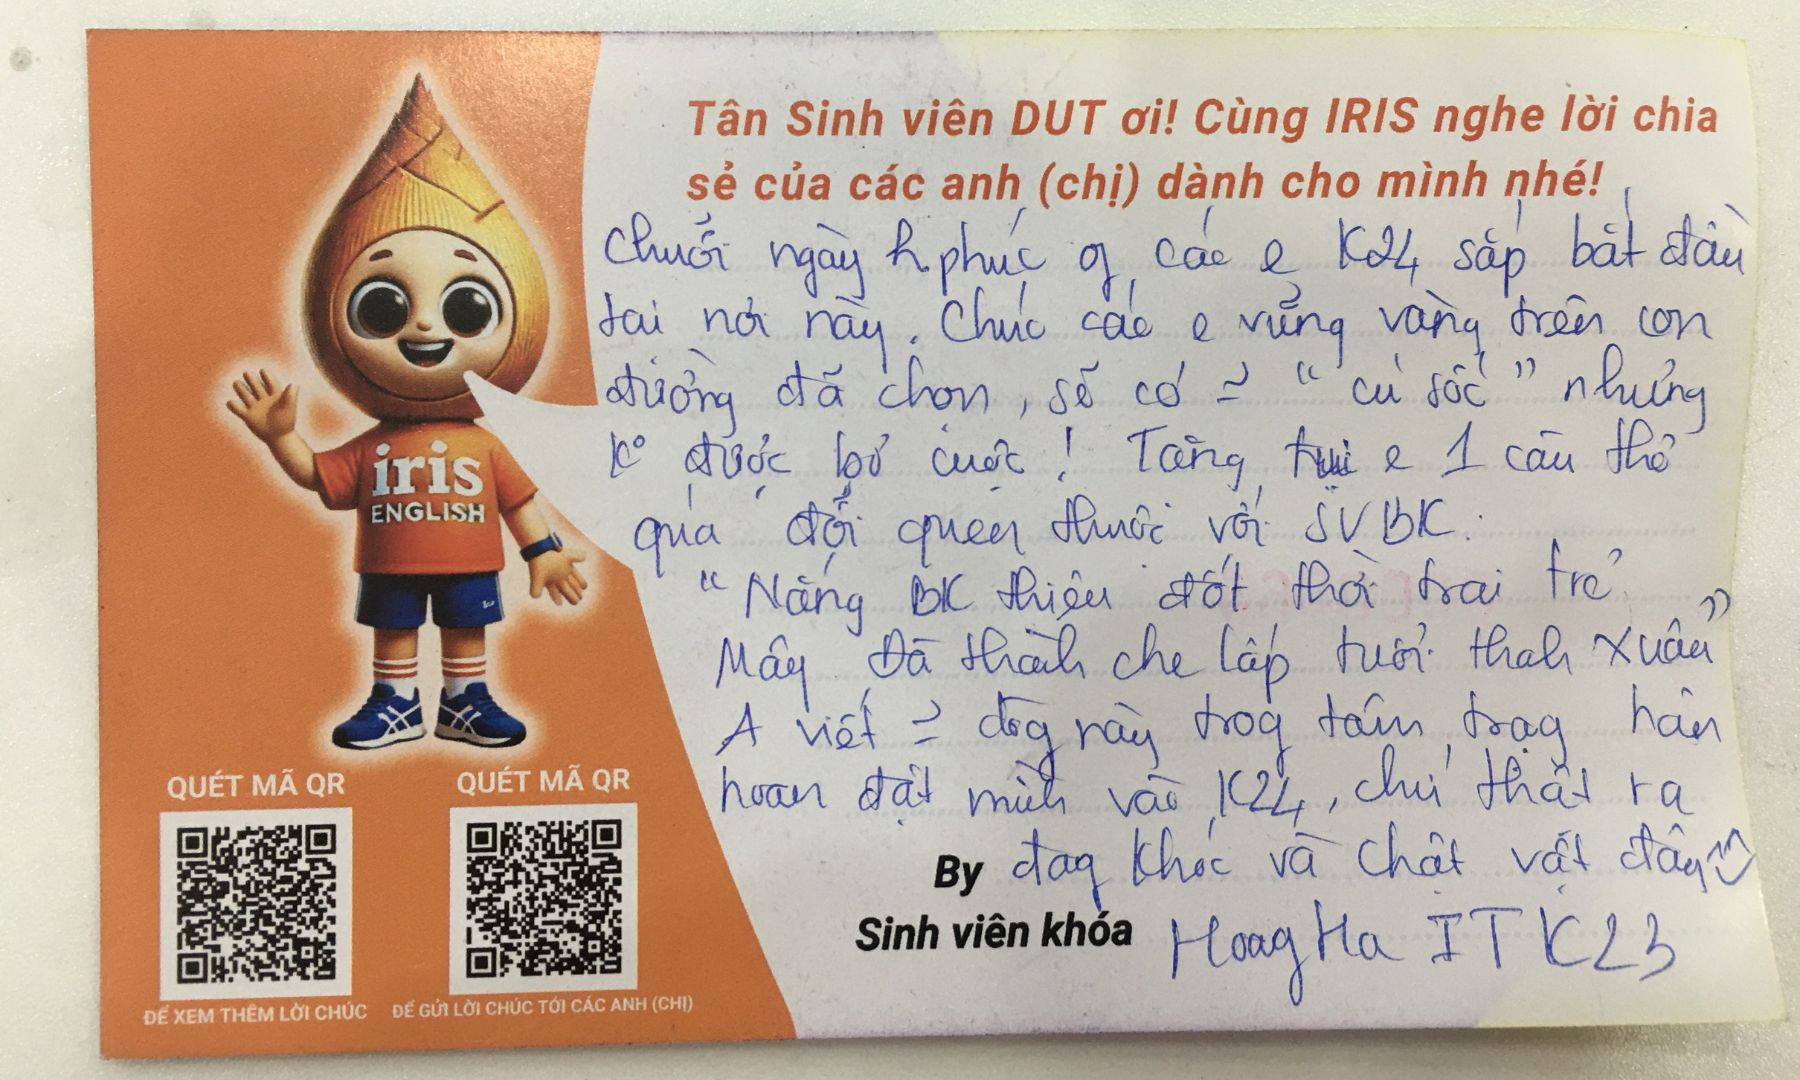 Tân Sinh viên DUT ơi! Cùng IRIS nghe lời chia
sẻ của các anh (chị) dành cho mình nhé!
Chuỗi ngày h.phúc of các e K24 sắp bắt đầu
tại nơi này. Chúc các e vững vàng trên con
đường đã chọn, sẽ có = "cú sốc" nhưng
k° được bỏ cuộc! Tặng tụi e 1 câu thơ
quá đỗi quen thuộc với SVBK.
"Nắng BK thiêu đốt thời trai trẻ
Mây Đà thành che lấp tuổi thah xuân"
A viết = dòg này trog tâm trạg hân
hoan đặt mình vào K24, chứ thật ra
By đag khóc và chật vật đây
Sinh viên khóa Hoag Ha IT K23
iris
ENGLISH
QUÉT MÃ QR
ĐỂ XEM THÊM LỜI CHÚC
QUÉT MÃ QR
ĐỂ GỬI LỜI CHÚC TỚI CÁC ANH (CHỊ)